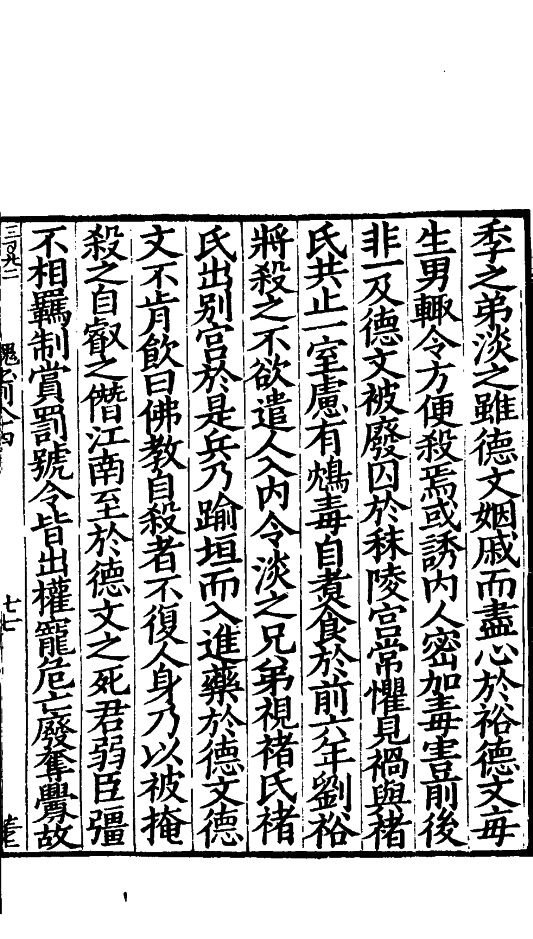 季之弟淡之雖德文姻戚而盡心於裕德文每
生男輙令方便殺焉或誘內人密加毒害前後
非一及德文被廢囚於秣陵宮常懼見禍與褚
氏共止一室慮有鴆毒自煮食於前六年劉裕
將殺之不欲遣人入內令淡之兄弟視褚氏褚
氏出別宮於是兵乃踰垣而入進藥於德文德
文不肯飲曰佛教自殺者不復人身乃以被掩
殺之自叡之僭江南至於德文之死君弱臣彊
不相羈制賞罰號令皆出權寵危亡廢奪釁故